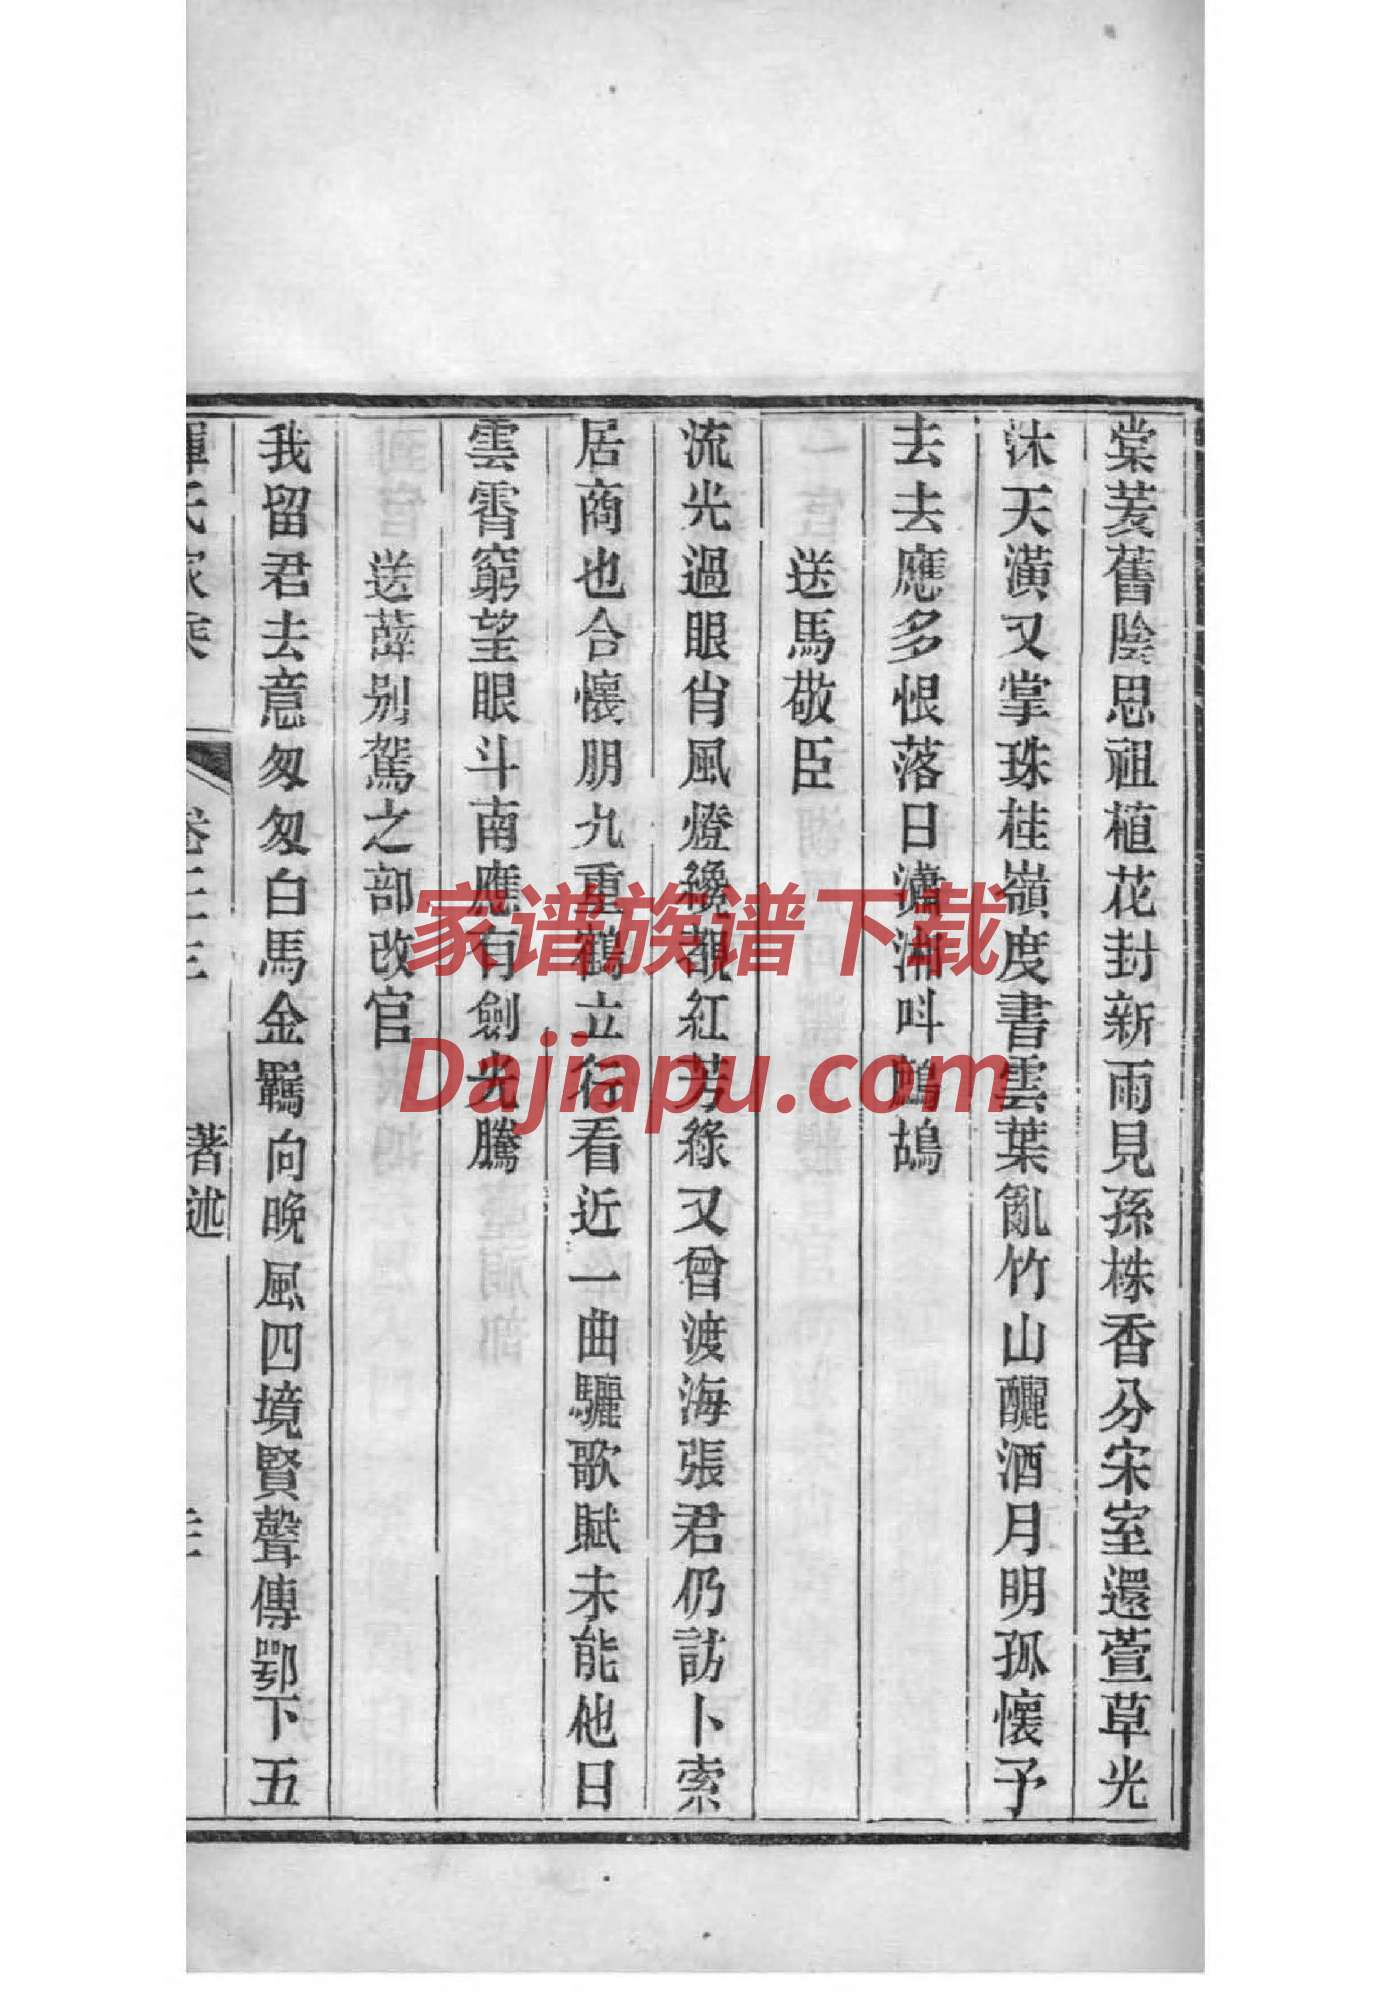 棠芰舊陰思祖植花封新雨見孫株香分宋室還萱草光
沐天潢又掌珠桂嶺度書雲葉亂竹山釃酒月明孤懷予
去去應多恨落日瀟湘叫鷓鴣
送馬敬臣
流光過眼肖風燈纔覩紅芳綠又曾渡海張君仍訪卜索
居商也合懷朋九重鶴立行看近一曲驪歌賦未能他日
雲霄窮望眼斗南應有劍光騰
送薛別駕之部改官
我留君去意匆匆白馬金羈向晚風四境賢聲傳鄂下五
氏家乘
卷三
著述
家谱族谱下载
Dajiapu.com